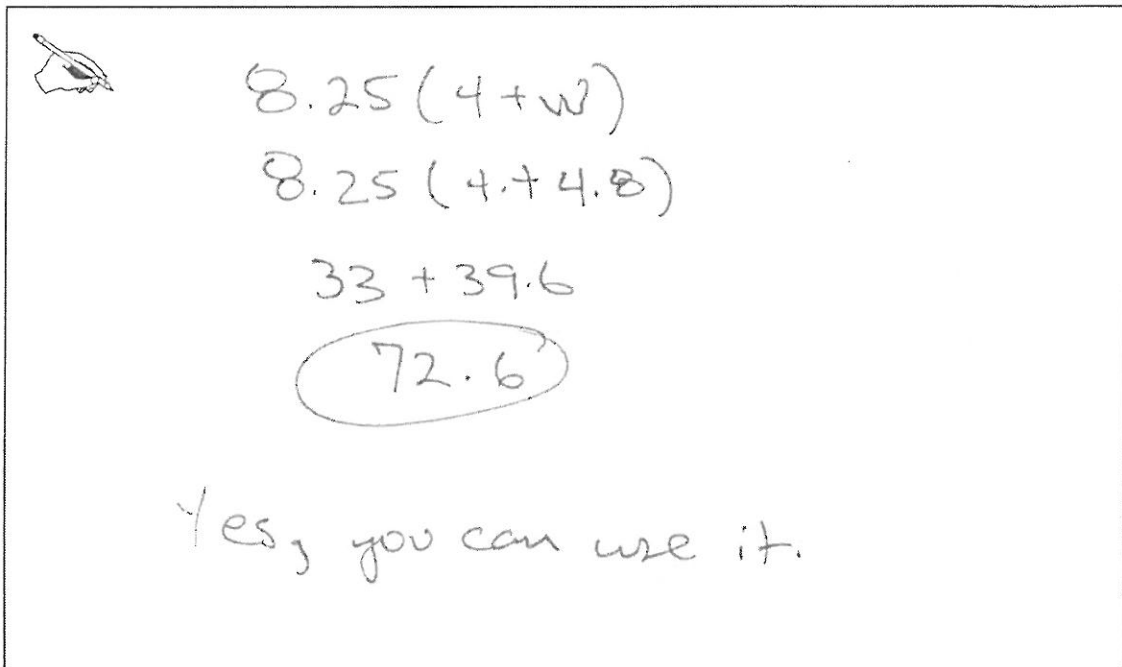 8.25(4+w)
8.25(4.+4.8)
33 + 39.6
72.6
Yes, you can use it.